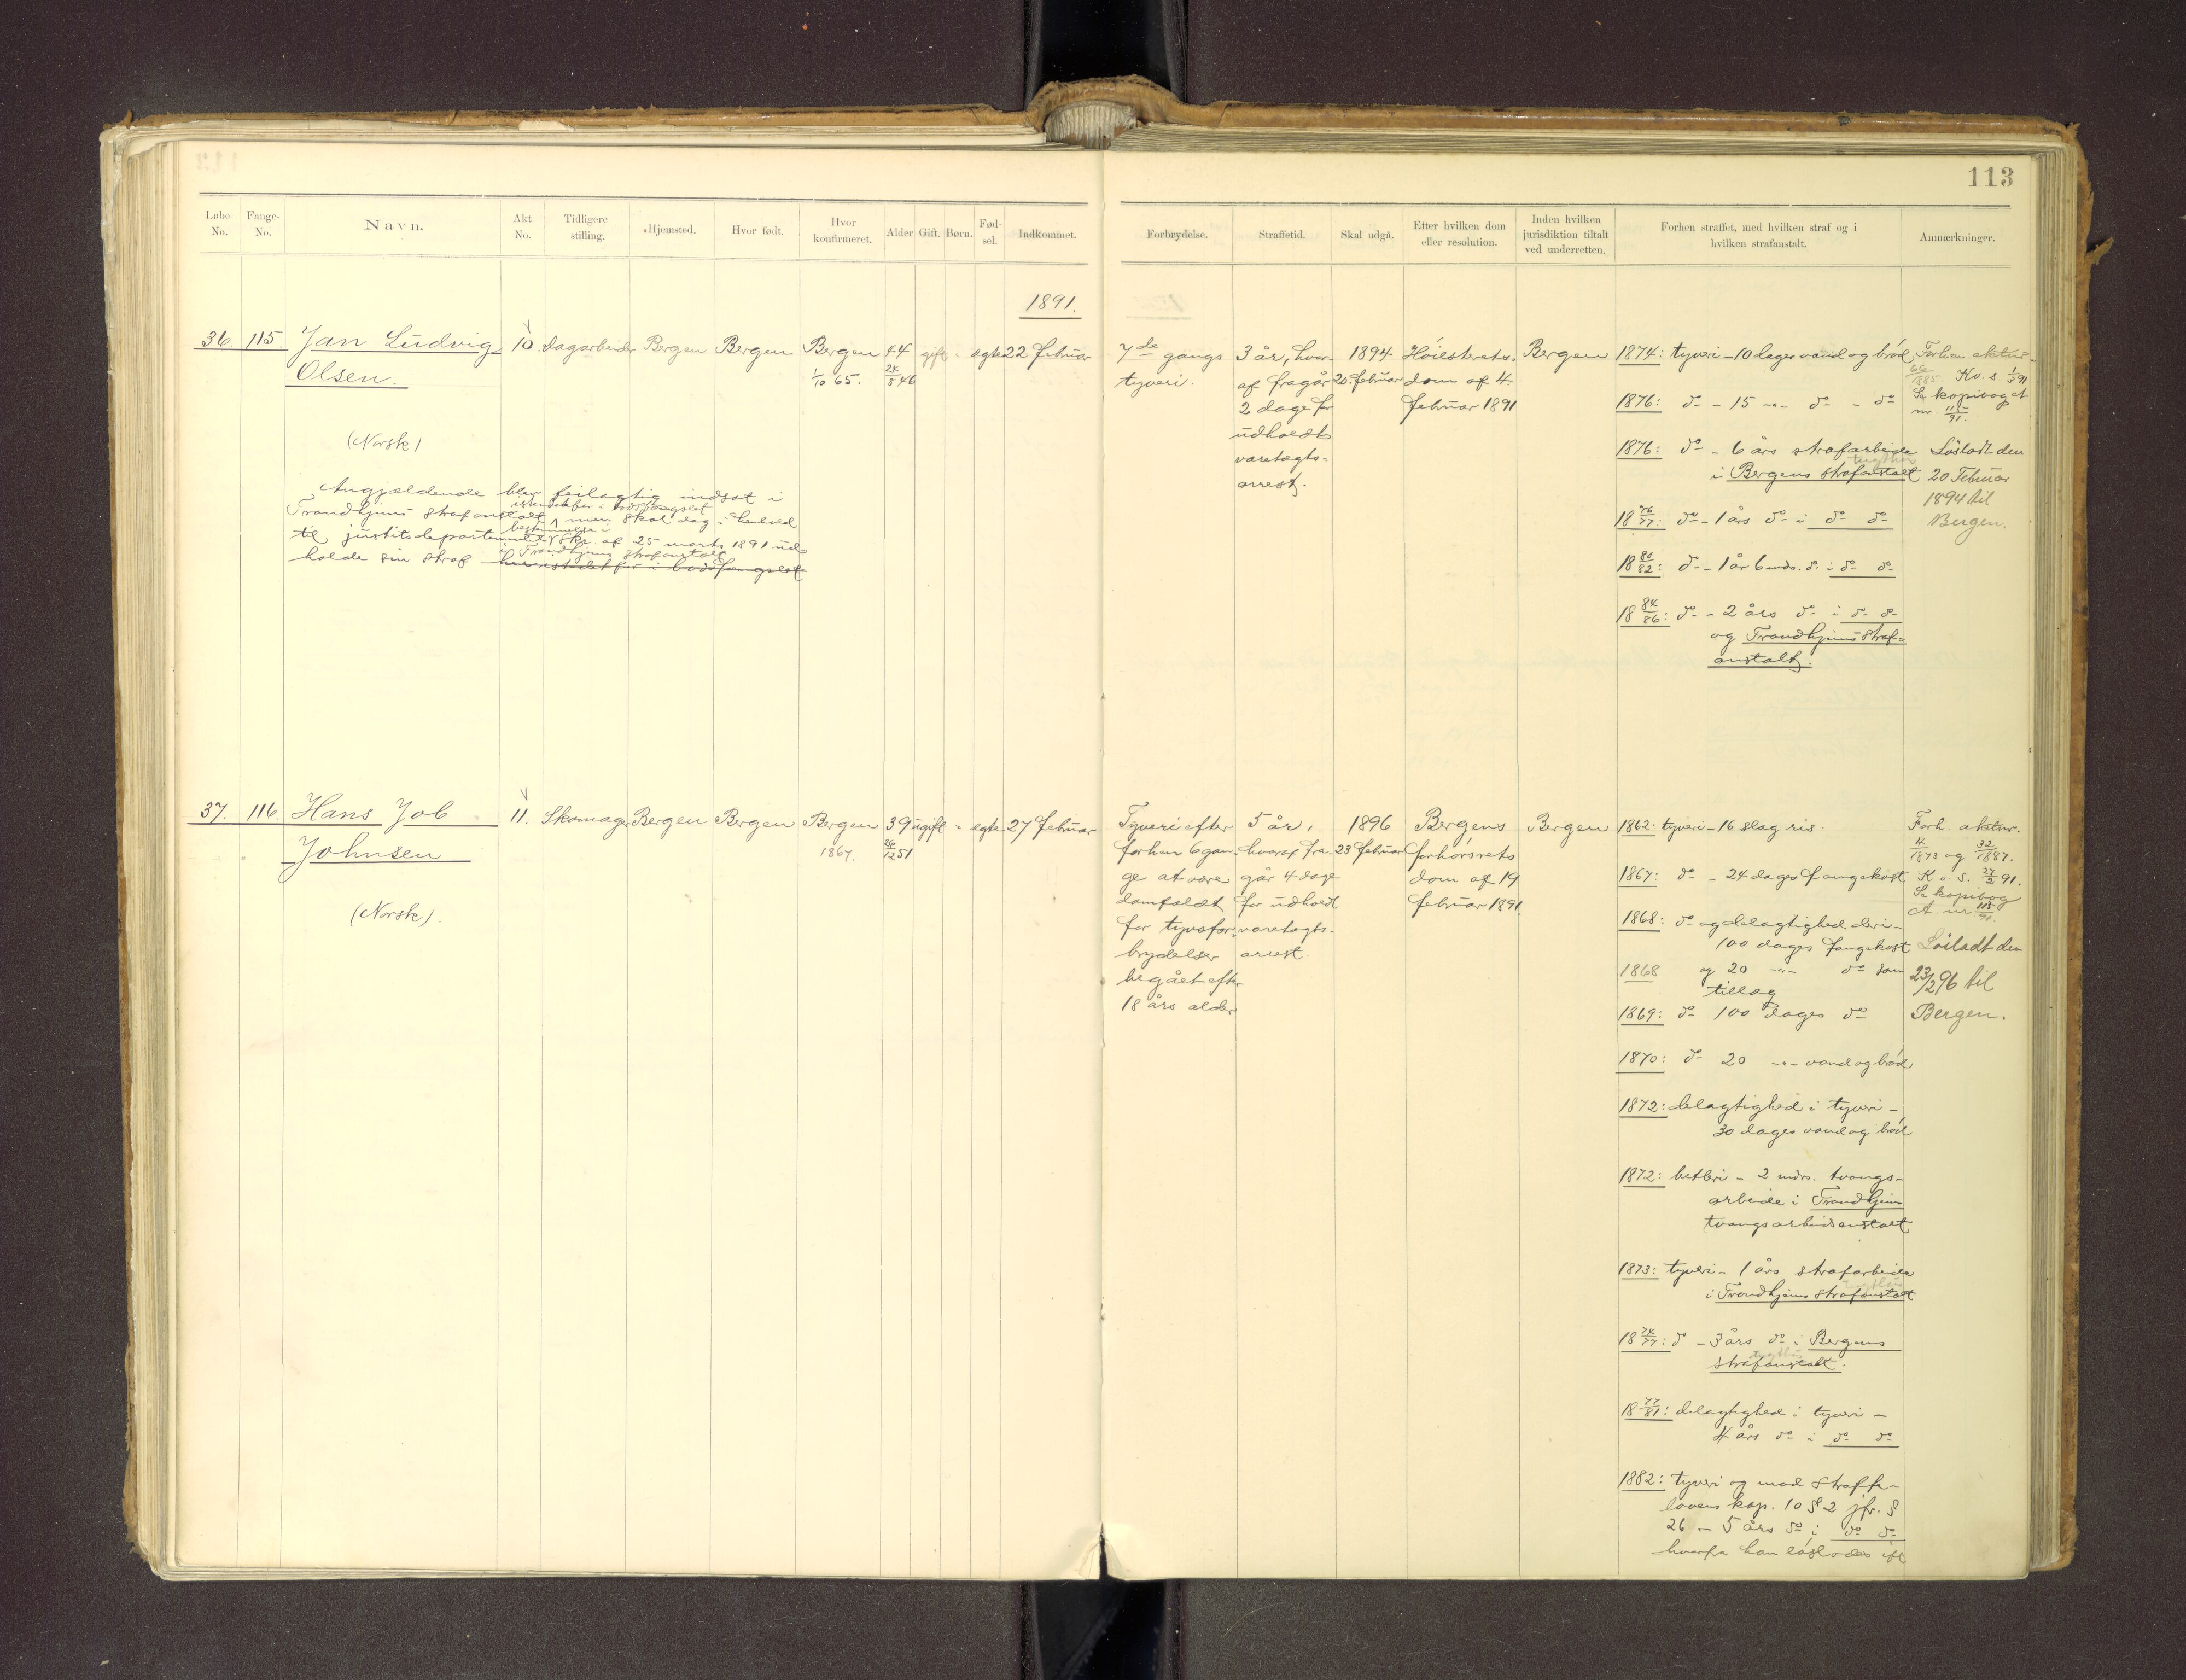 113
Løbe-No. Fange-No. Navn. Akt No. Tidligere stilling. Hjemsted. Hvor født. Hvor konfirmeret. Alder Gift. Børn. Fød-sel. Indkommet.
Forbrydelse. Straffetid. Skal udgå. Efter hvilken dom eller resolution. Inden hvilken jurisdiktion tiltalt ved underretten. Forhen straffet, med hvilken straf og i hvilken strafanstalt. Anmærkninger.
1891.
36. 115. Jan Ludvig Olsen. 10 Dagarbeider Bergen Bergen Bergen 44 gift " ægte 22 februar
1/10 65. 24/8 46
(Norsk)
Angjældende blev feilagtig indsat i
Trondhjems strafanstalt istedetfor i bodsfængslet men skal dog i henhold
til justitsdepartementets bestemmelse i skr. af 25 marts 1891 ud-
holde sin straf i Trondhjems strafanstalt
herinstedetfor i bodsfængslet
7de gangs
tyveri.
3 år, hvor-
af fragår
2 dage for
udholdt
varetægts-
arrest.
1894
20 februar
Høiesterets-
dom af 4
februar 1891
Bergen
1874: tyveri - 10 dages vand og brød
1876: do - 15 -"- do - do
1876: do - 6 års strafarbeide
i Bergens strafanstalt
tugthus
18 76/77: do - 1 års do i do do
18 80/82: do - 1 år 6 mdr. do i do do
18 84/86: do - 2 års do i do do
og Trondhjems straf-
anstalt.
Forhen aktnr.
66/1885. Kv. s. 1/3 91
Se kopibog A
nr. 115/91.
Løsladt den
20 Februar
1894 til
Bergen.
37. 116. Hans Job Johnsen 11. Skomager Bergen Bergen Bergen 39 ugift " ægte 27 februar
1867. 26/12 51
(Norsk).
Tyveri efter
forhen 6 gan-
ge at være
domfældt
for tyvsfor-
brydelser
begået efter
18 års alder
5 år,
hvoraf fra-
går 4 dage
for udholdt
varetægts-
arrest.
1896
23 februar
Bergens
forhørsrets
dom af 19
februar 1891.
Bergen
1862: tyveri - 16 slag ris.
1867: do - 24 dages fangekost
1868: do og delagtighed deri -
100 dages fangekost
1868 og 20 -"- do som
tillæg
1869: do 100 dages do
1870: do 20 -"- vand og brød
1872: delagtighed i tyveri -
30 dages vand og brød
1872: betleri - 2 mdrs. tvangs-
arbeide i Trondhjems
tvangsarbeidsanstalt
1873: tyveri - 1 års strafarbeide
i Trondhjems strafanstalt
tugthus
18 74/77: do - 3 års do i Bergens
strafanstalt.
tugthus
18 77/81: delagtighed i tyveri -
4 års do i do do
1882: tyveri og mod straffe-
lovens kap. 10 § 2 jfr. §
26 - 5 års do i do do
hvorfra han løslodes ift
Forh. aktnr.
4/1873 og 32/1887.
K. v. s. 27/2 91.
Se kopibog
A. nr 115/91.
Løsladt den
23/2 96 til
Bergen.